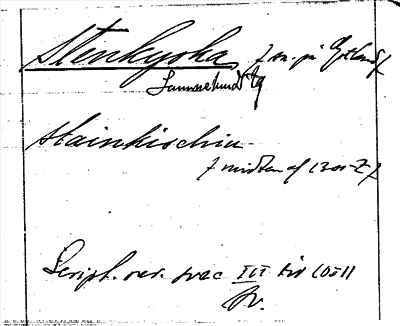 Stenkyrka / sn. på Gotland /
Lummelunda tg
Stainkirchiu
/ midten af 1300-t /
Script. rer. svec III